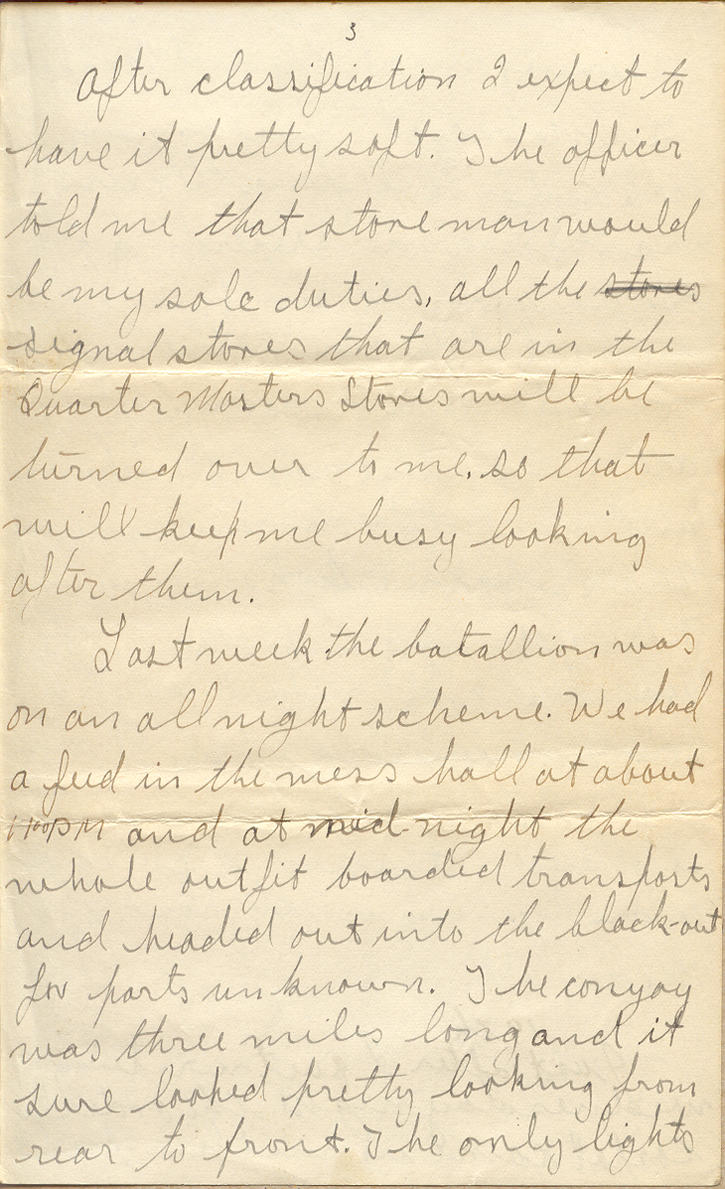 3
After classification I expect to
have it pretty soft. The officer
told me that store man would
be my sole duties, all the stores
signal stores that are in the
Quarter Masters Stores will be
turned over to me, so that
will keep me busy looking
after them.
Last week the batallion was
on an all night scheme. We had
a feed in the mess hall at about
1100PM and at mid-night the
whole outfit boarded transports
and headed out into the black-out
for parts unknown. The convoy
was three miles long and it
sure looked pretty looking from
rear to front. The only lights